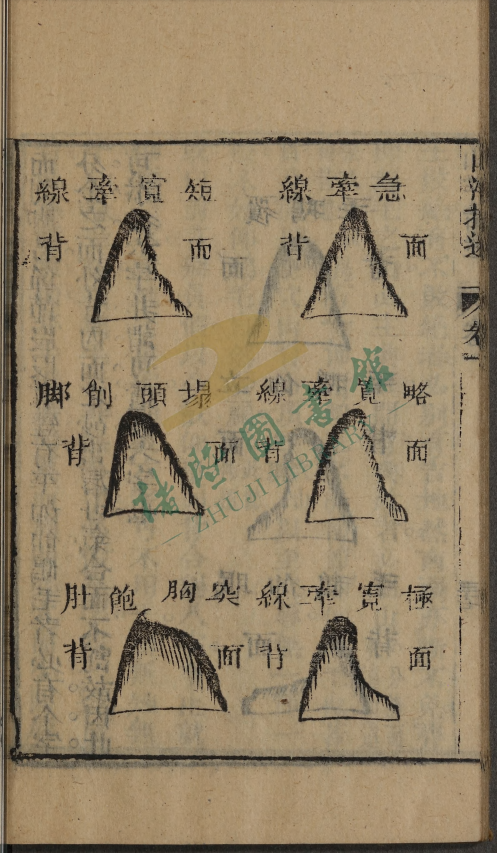 急牽線
面
背
短寬牽線
面
背
略寬牽線
面
背
塌頭削脚
面
背
極寬牽線
面
背
突胸飽肚
面
背
諸暨圖書館
ZHUJI LIBRARY